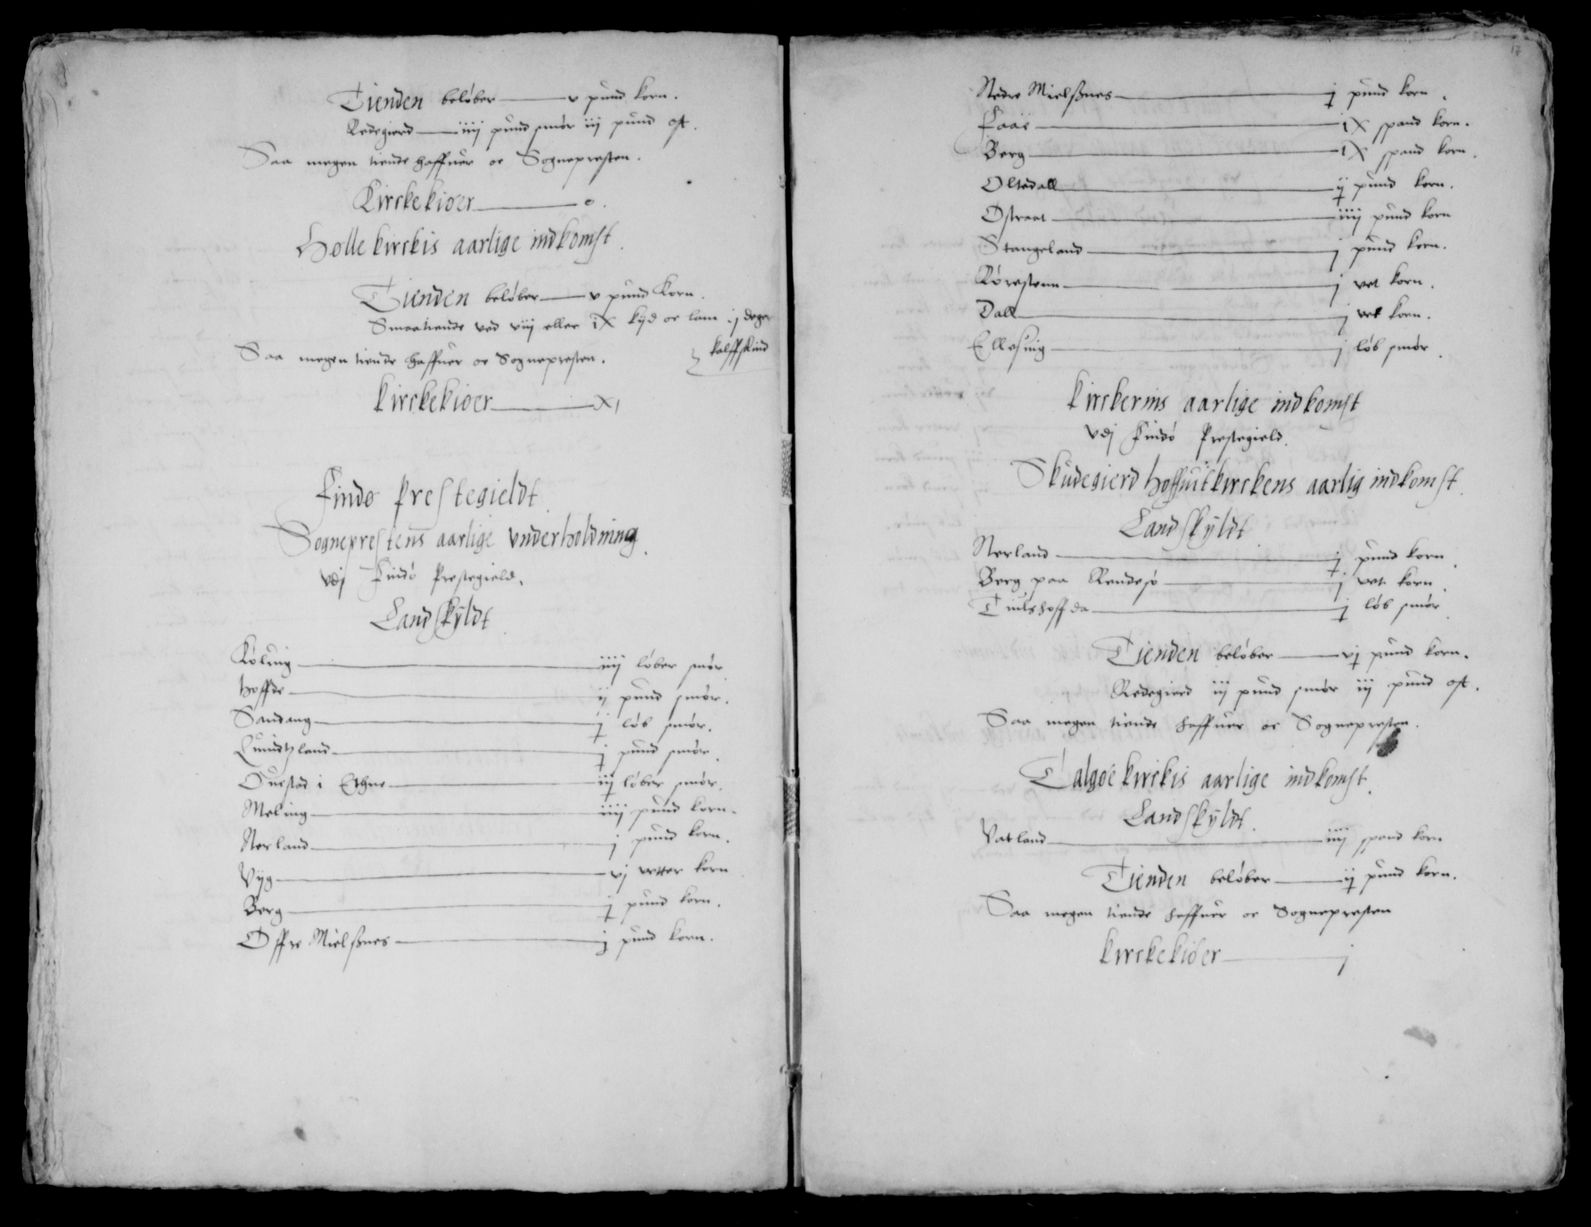 Tienden beløber — v pund korn.
Redegierd — iiij pund smør iij pund ost.
Saa megen tiende haffuer oc Sognepresten.
Kirckekiøer — o.
Holle kirckis aarlige indkomst.
Tienden beløber — v pund Korn.
Smaatiende ved viij eller ix kijd oc lam ij deger
kalffskind
Saa megen tiende haffuer oc Sognepresten.
Kirckekiøer — xj
Findø Prestegieldt.
Sogneprestens aarlige vnderholdning.
vdj Findø Prestegield.
Landskyldt
Køling — iiij løber smør
Hoffde — ij pund smør.
Sandang — j løb smør.
Quindtzland — j pund smør.
Ouestad i Ethne — iij løber smør.
Meling — iiij pund korn.
Nerland — j pund korn.
Vijg — vj vetter korn
Berg — j pund korn.
Øffre Mielssnes — j pund korn.
17
Nedre Mielssnes — j pund korn.
Faaë — ix spand korn.
Berg — ix spand korn.
Oltedall — ij pund korn.
Østraat — iiij pund korn
Stangeland — j pund korn.
Kørestenn — j vet korn.
Dall — j vet korn.
Ellesuig — j løb smør.
Kirckerns aarlige indkomst
vdj Findø Prestegield.
Skudegierd hoffuitkirckens aarlig indkomst.
Landskyldt
Nerland — j pund korn.
Berg paa Rendesø — j vet korn.
Tiulshoffda — j løb smør.
Tienden beløber — vj pund korn.
Redegierd iij pund smør iij pund ost.
Saa megen tiende haffuer oc Sognepresten.
Talgøe kirckis aarlige indkomst.
Landskyldt.
Vatland — iiij spand korn
Tienden beløber — ij pund korn.
Saa megen tiende haffuer oc Sognepresten
Kirckekiøer — j